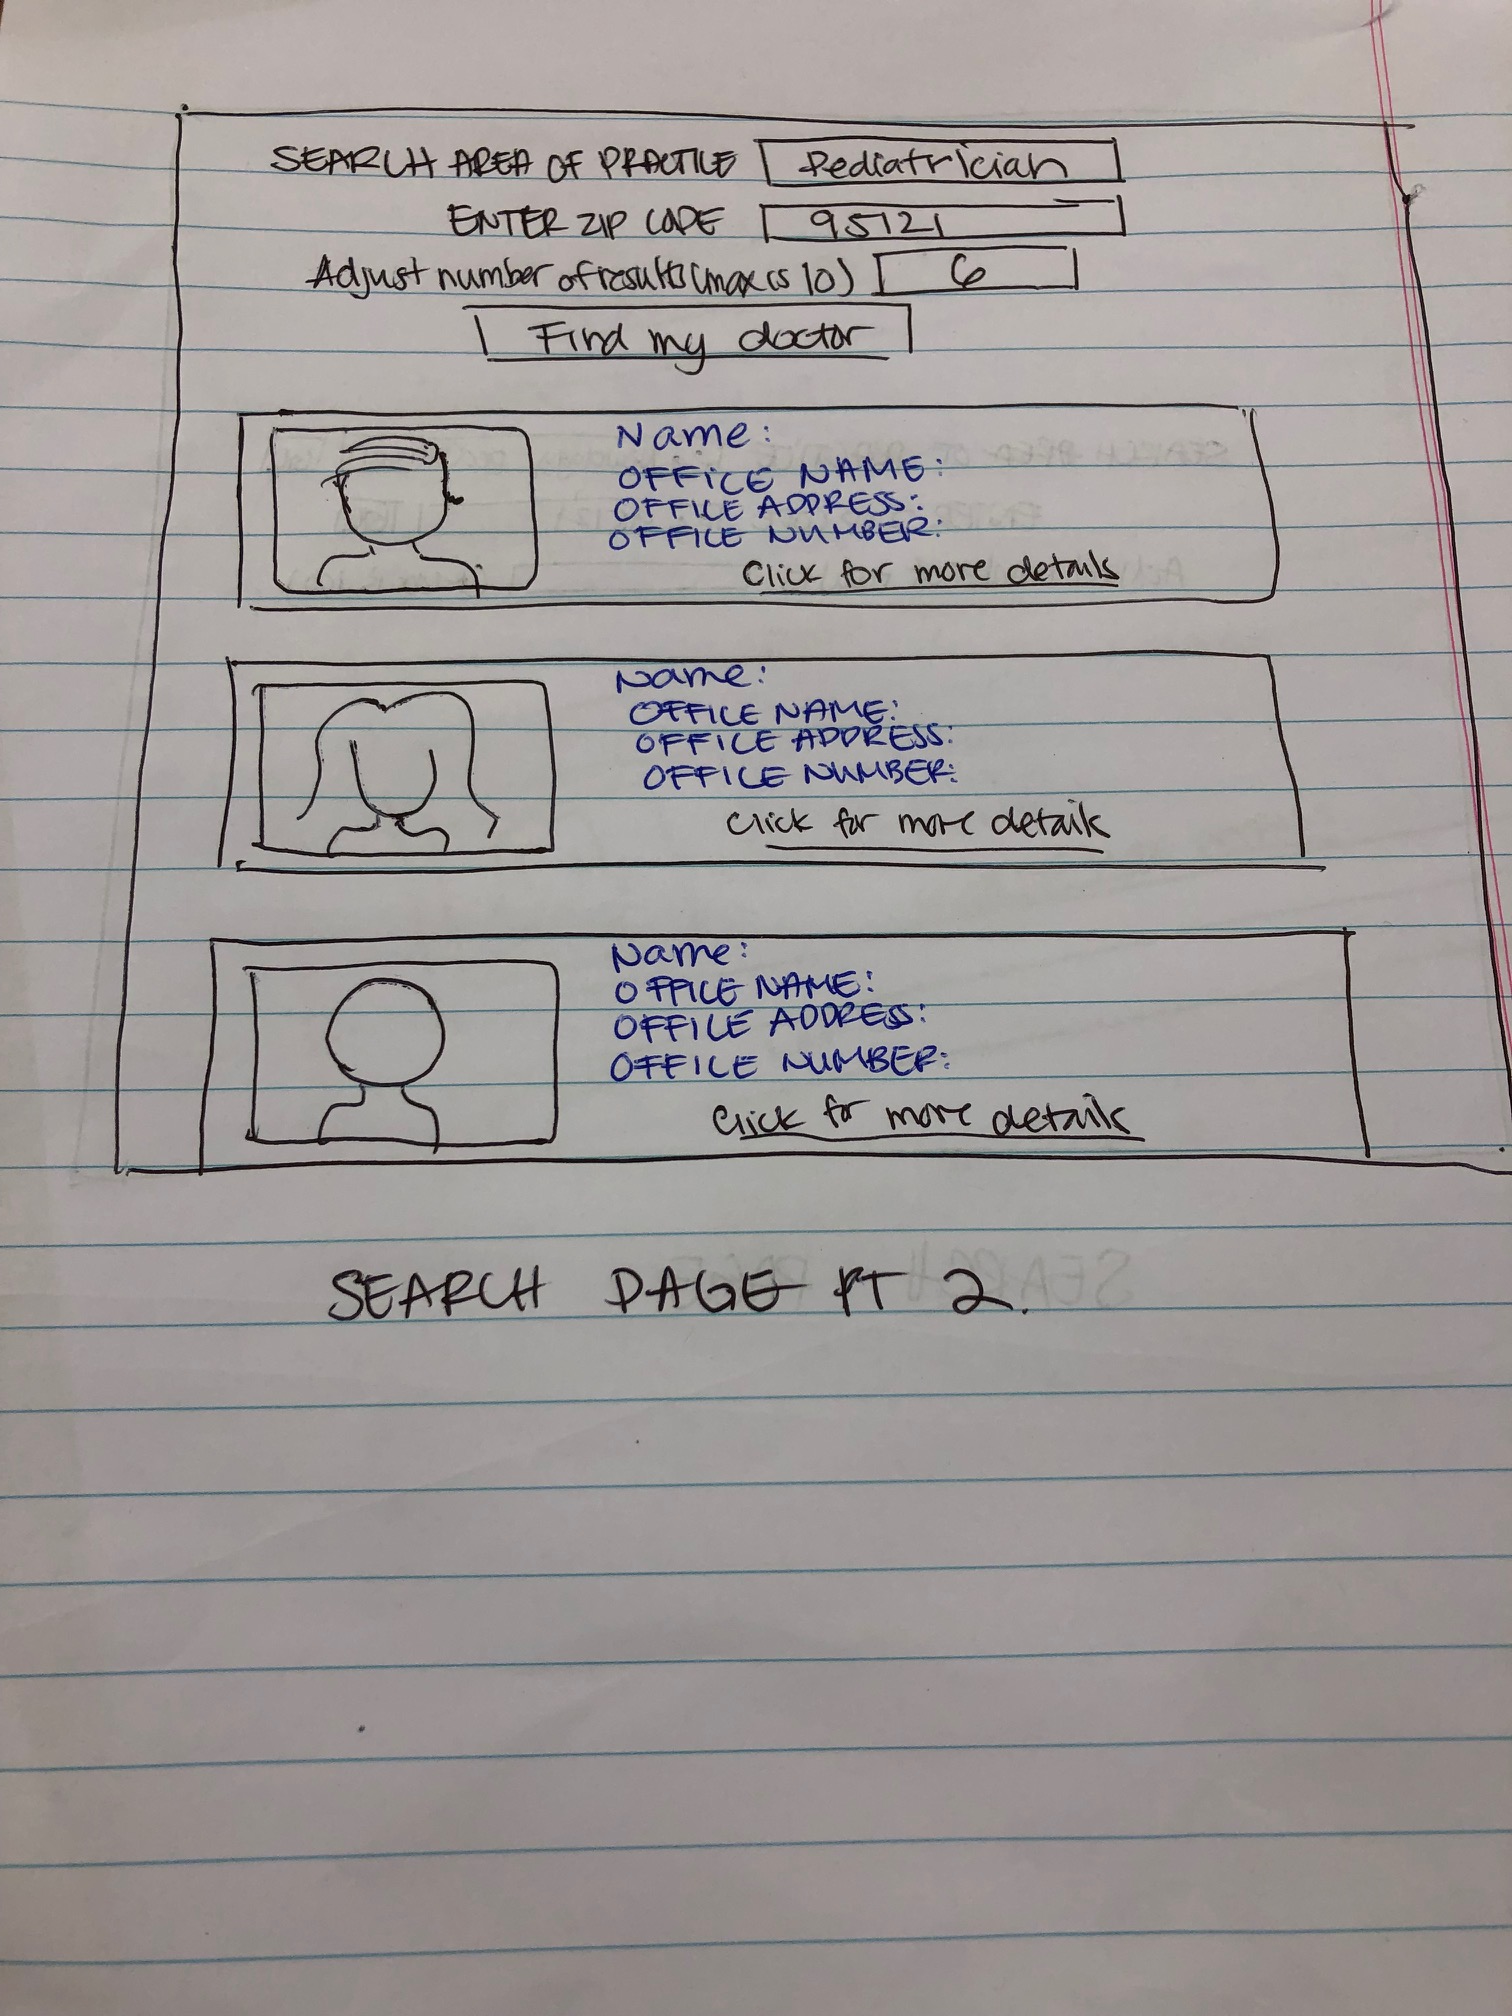 SEARCH AREA OF PRACTICE Pediatrician
ENTER ZIP CODE 95121
Adjust number of results (max is 10) 6
Find my doctor
Name:
OFFICE NAME:
OFFICE ADDRESS:
OFFICE NUMBER:
Click for more details
Name:
OFFICE NAME:
OFFICE ADDRESS:
OFFICE NUMBER:
Click for more details
Name:
OFFICE NAME:
OFFICE ADDRESS:
OFFICE NUMBER:
Click for more details
SEARCH PAGE PT 2.